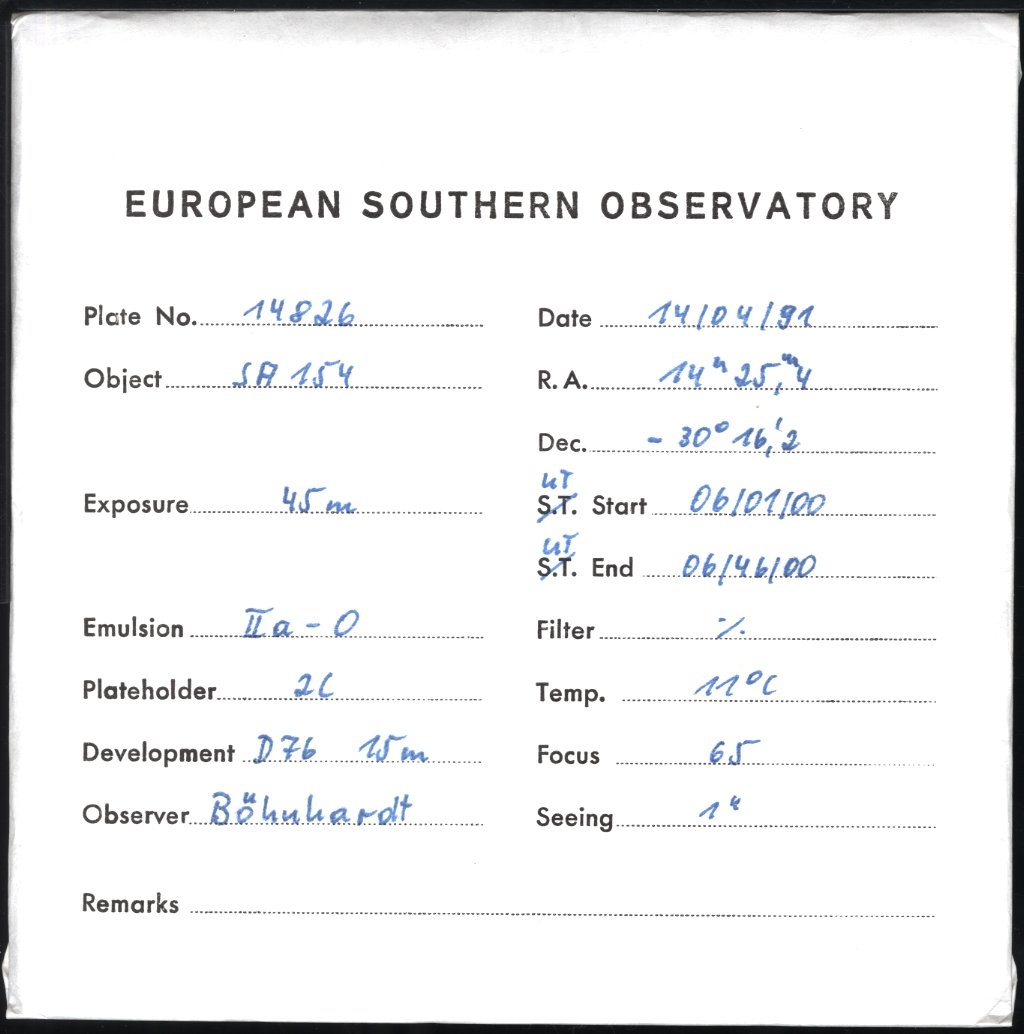 EUROPEAN SOUTHERN OBSERVATORY
Plate No. 14826 Date 14/04/91
Object SA 154 R.A. 14ʰ 25,ᵐ4
Dec. - 30° 16,'2
UT
Exposure 45m S.T. Start 06/01/00
UT
S.T. End 06/46/00
Emulsion IIa - O Filter ·/.
Plateholder 2C Temp. 11°C
Development D76 15m Focus 65
Observer Böhnhardt Seeing 1"
Remarks